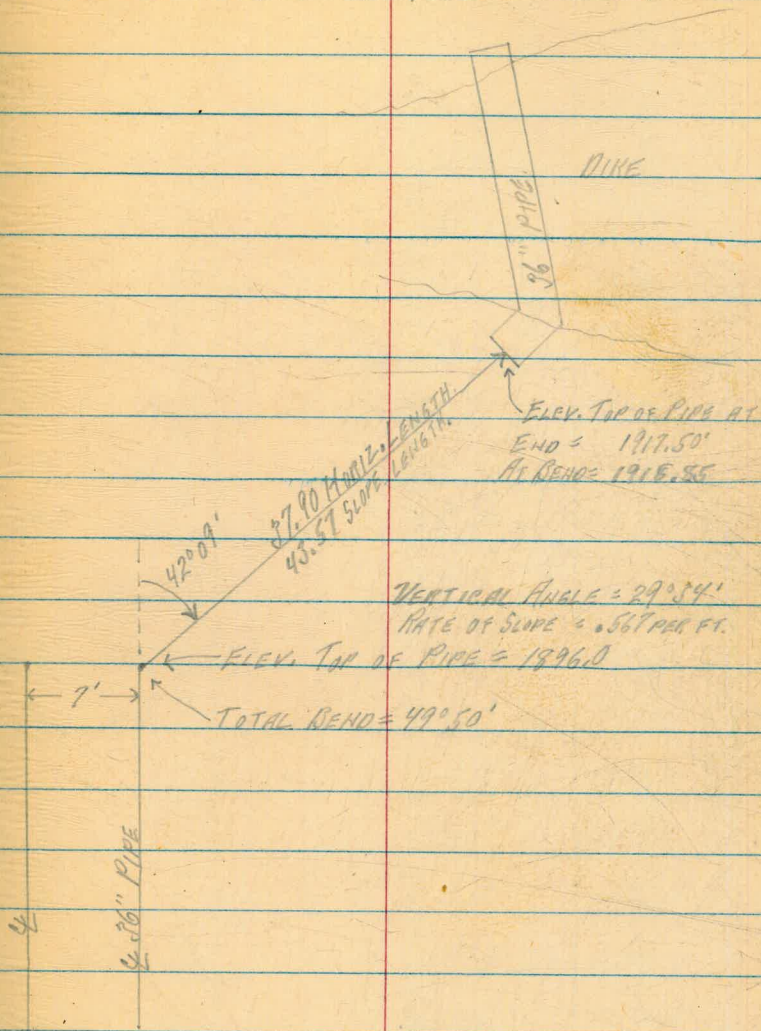 DIKE
36" PIPE
ELEV. TOP OF PIPE AT
END = 1917.50'
AT BEND =
37.90 HORIZ. LENGTH.
43.57 SLOPE LENGTH.
42°09'
VERTICAL ANGLE = 29°34'
RATE OF SLOPE = .567 PER FT.
ELEV. TOP OF PIPE = 1896.0
7'
TOTAL BEND = 49°50'
℄ 36" PIPE
℄